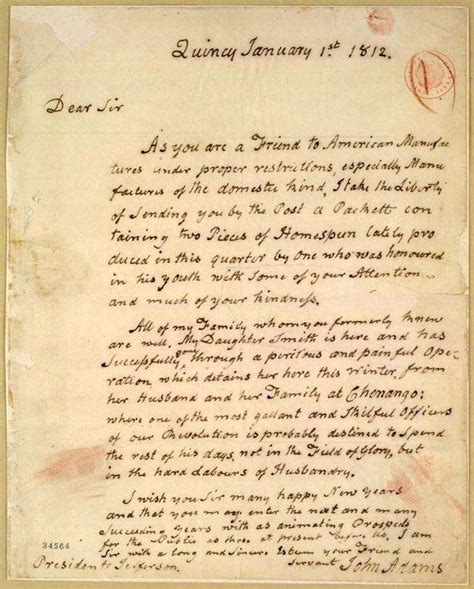 Quincy January 1st 1812.
Dear Sir
As you are a Friend to American Manufac
tures under proper restrictions, especially Manu
factures of the domestic kind, I take the Liberty
of Sending you by the Post a Packett con
taining two Pieces of Homespun lately pro
duced in this quarter by One who was honoured
in his youth with Some of your Attention
and much of your kindness.
All of my Family whom you formerly knew
are well. My Daughter Smith is here and has
Successfully gone through a perilous and painful Ope
ration, which detains her here this Winter, from
her Husband and her Family at Chenango:
where one of the most gallant and Skilful Officers
of our Revolution is probably destined to Spend
the rest of his days, not in the Field of Glory, but
in the hard Labours of Husbandry.
I wish you Sir many happy New Years
and that you may enter the next and many
Succeeding Years with as animating Prospects
for the Public as those at present before Us. I am
Sir with a long and Sincere Esteem your Friend and
Servant John Adams
President Jefferson.
34564